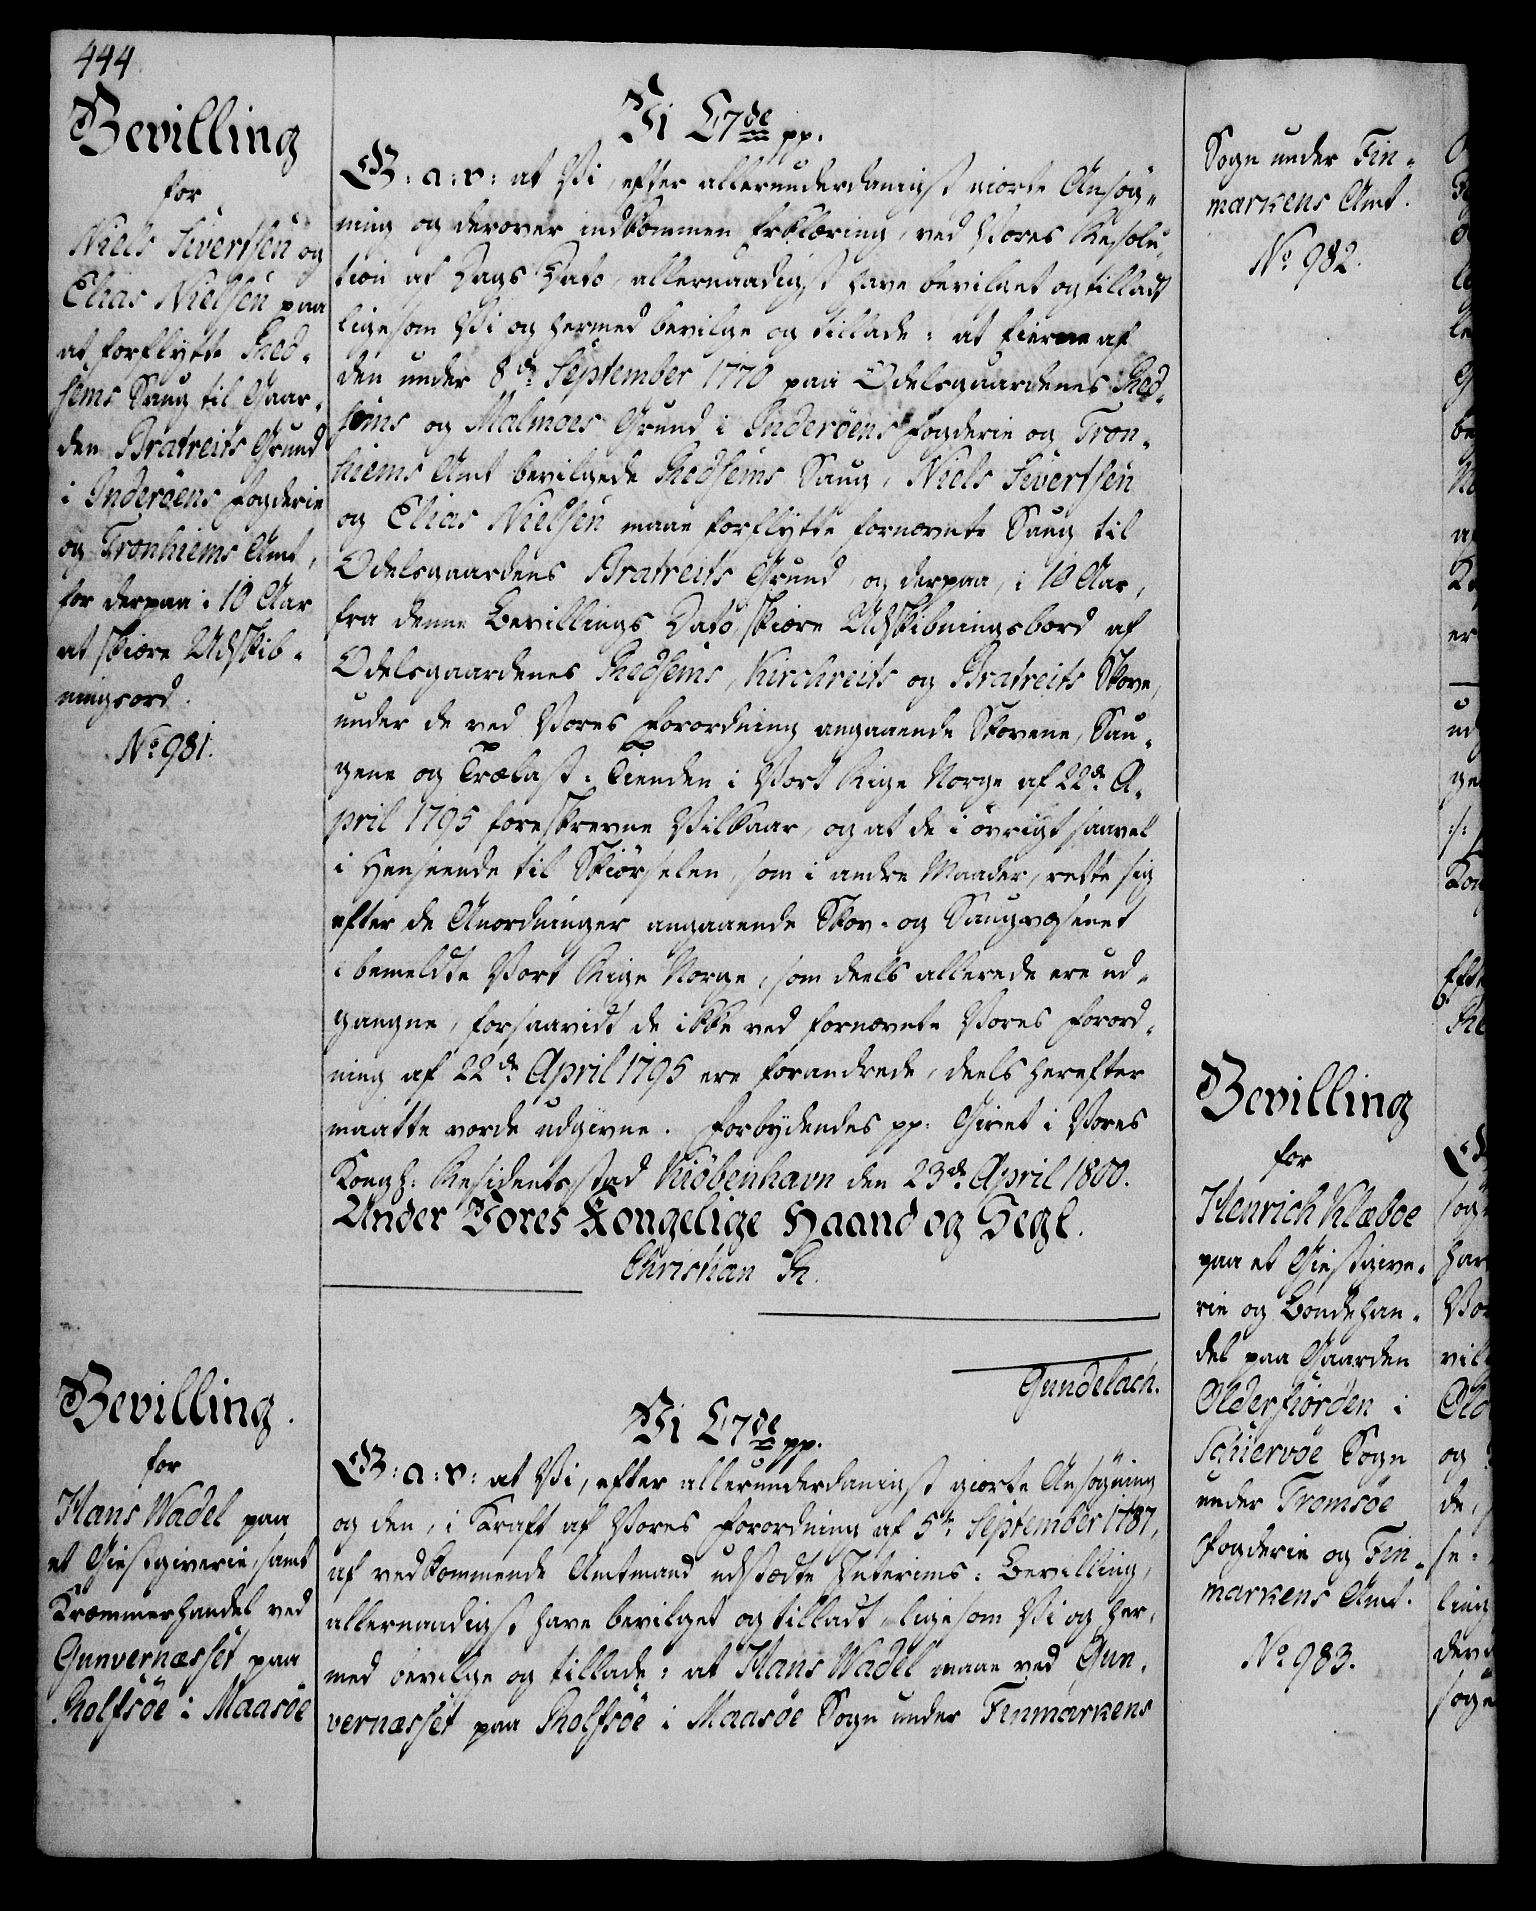 444
Bevilling
for
Niels Sivertsen og
Elias Nielsen paa
at forflytte Rød-
seims Saug til Gaar-
den Bratreits Grund
i Inderøens Fogderie
og Tronhiems Amt,
for derpaa i 10 Aar
at skiære Udskib-
ningsord.
No 981.
Vi C7de pp.
G: a: v: at Vi, efter allerunderdanigst giorte Ansøg-
ning og derover indkommen Erklæring, ved Vores Resolu-
tion af Dags Dato, allernaadigst have bevilget og tilladt
ligesom Vi og hermed bevilge og tillade: at Eierne af
den under 8de September 1770 paa Odelsgaardenes Rød-
seims og Malmoes Grund i Inderøens Fogderie og Tron-
hiems Amt bevilgede Rødseims Saug, Niels Sivertsen
og Elias Nielsen maae forflytte fornævnte Saug til
Odelsgaardens Bratreits Grund, og derpaa, i 10 Aar,
fra denne Bevillings Dato, skiære Udskibningsbord af
Odelsgaardenes Rødseims, Kirchreits og Bratreits Skove,
under de ved Vores Forordning angaaende Skovene, Sau-
gene og Trælast-Tienden i Vort Rige Norge af 22de A-
pril 1795 foreskrevne Vilkaar, og at de i øvrigt saavel
i Henseende til Skiørselen, som i andre Maader, rette sig
efter de Anordninger angaaende Skov- og Saugvæsenet
i bemeldte Vort Rige Norge, som deels allerede ere ud-
gangne, forsaavidt de ikke ved fornævnte Vores Forord-
ning af 22de April 1795 ere forandrede, deels herefter
maatte vorde udgivne. Forbydendes pp: Givet i Vores
Kongl: Residentsstad Kiöbenhavn den 23de April 1800.
Under Vores Kongelige Haand og Segl.
Christian R.
Gundelach.
Bevilling.
for
Hans Wadel paa
et Giestgiverie, samt
Kræmmerhandel ved
Gunvernæsset paa
Rolfsøe i Maasøe
Vi C7de pp.
G: a: v: at Vi, efter allerunderdanigst giorte Ansøgning
og den, i Kraft af Vores Forordning af 5te September 1787,
af vedkommende Amtmand udstædte Interims-Bevilling,
allernaadigst have bevilget og tilladt, ligesom Vi og her-
med bevilge og tillade: at Hans Wadel maae ved Gun-
vernæsset paa Rolfsøe i Maasøe Sogn under Finmarkens
Sogn under Fin-
markens Amt.
No 982.
Bevilling
for
Henrich Klæboe
paa et Giestgive-
rie og Bondehan-
del paa Gaarden
Olderfiorden i
Schiervøe Sogn
under Tromsøe
Fogderie og Fin-
markens Amt.
No 983.